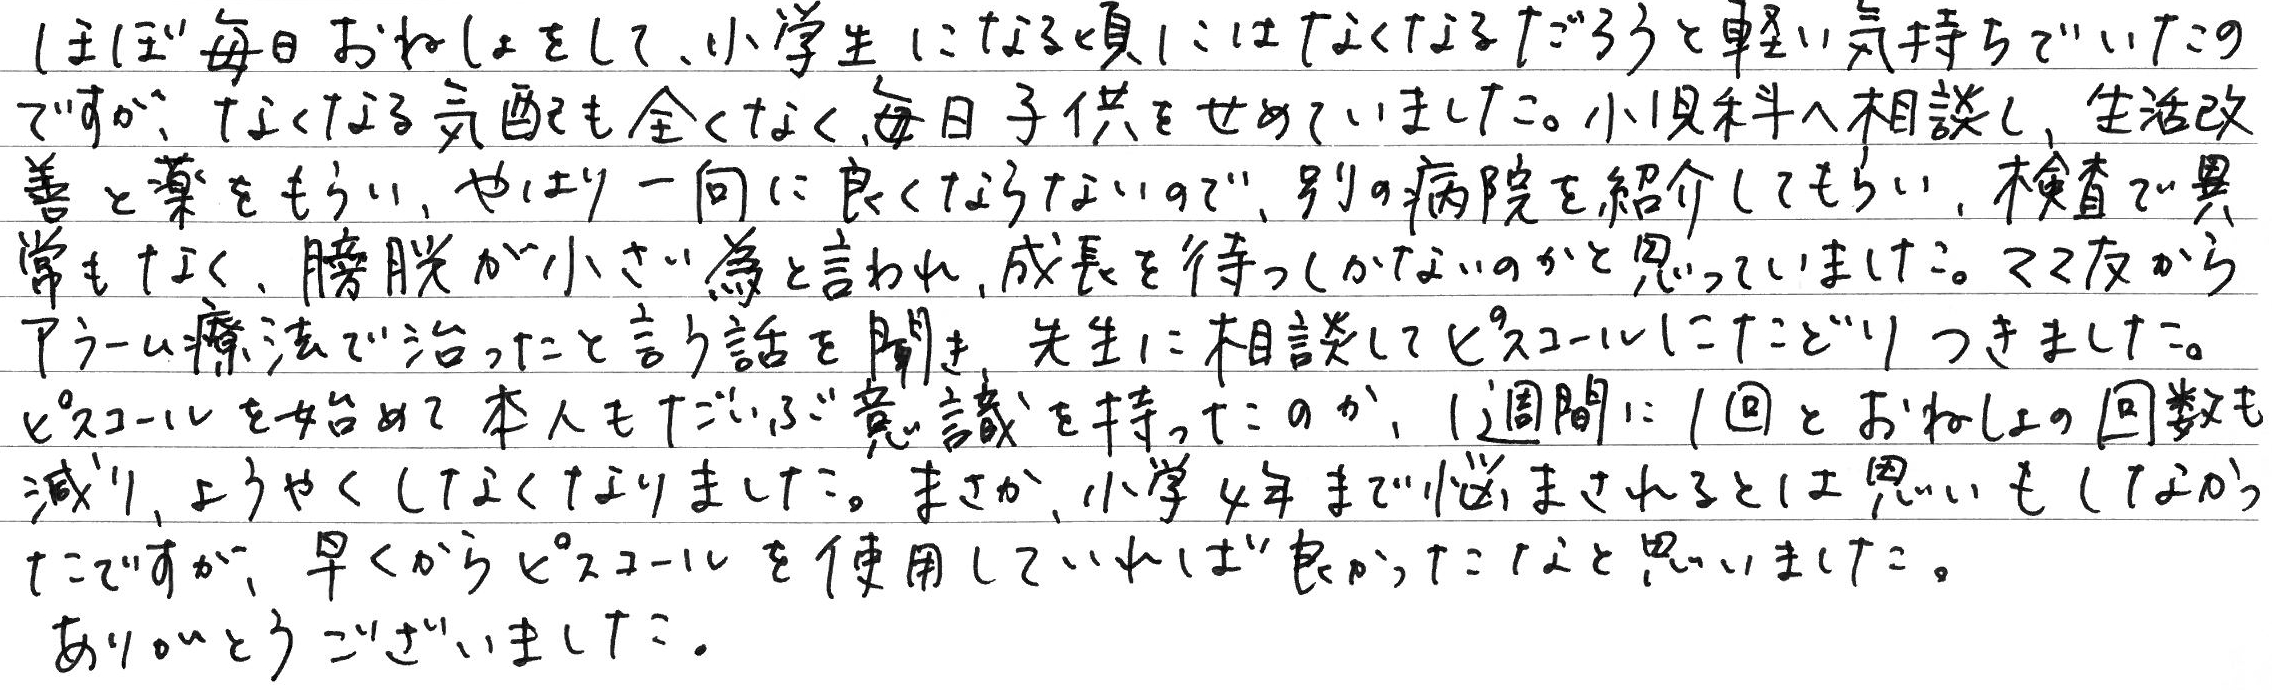 ほぼ毎日おねしょをして、小学生になる頃にはなくなるだろうと軽い気持ちでいたの
ですが、なくなる気配も全くなく、毎日子供をせめていました。小児科へ相談し、生活改
善と薬をもらい、やはり一向に良くならないので、別の病院を紹介してもらい、検査で異
常もなく、膀胱が小さい為と言われ、成長を待つしかないのかと思っていました。ママ友から
アラーム療法で治ったと言う話を聞き、先生に相談してピスコールにたどりつきました。
ピスコールを始めて本人もだいぶ意識を持ったのか、1週間に1回とおねしょの回数も
減り、ようやくしなくなりました。まさか、小学4年まで悩まされるとは思いもしなかっ
たですが、早くからピスコールを使用していれば良かったなと思いました。
ありがとうございました。